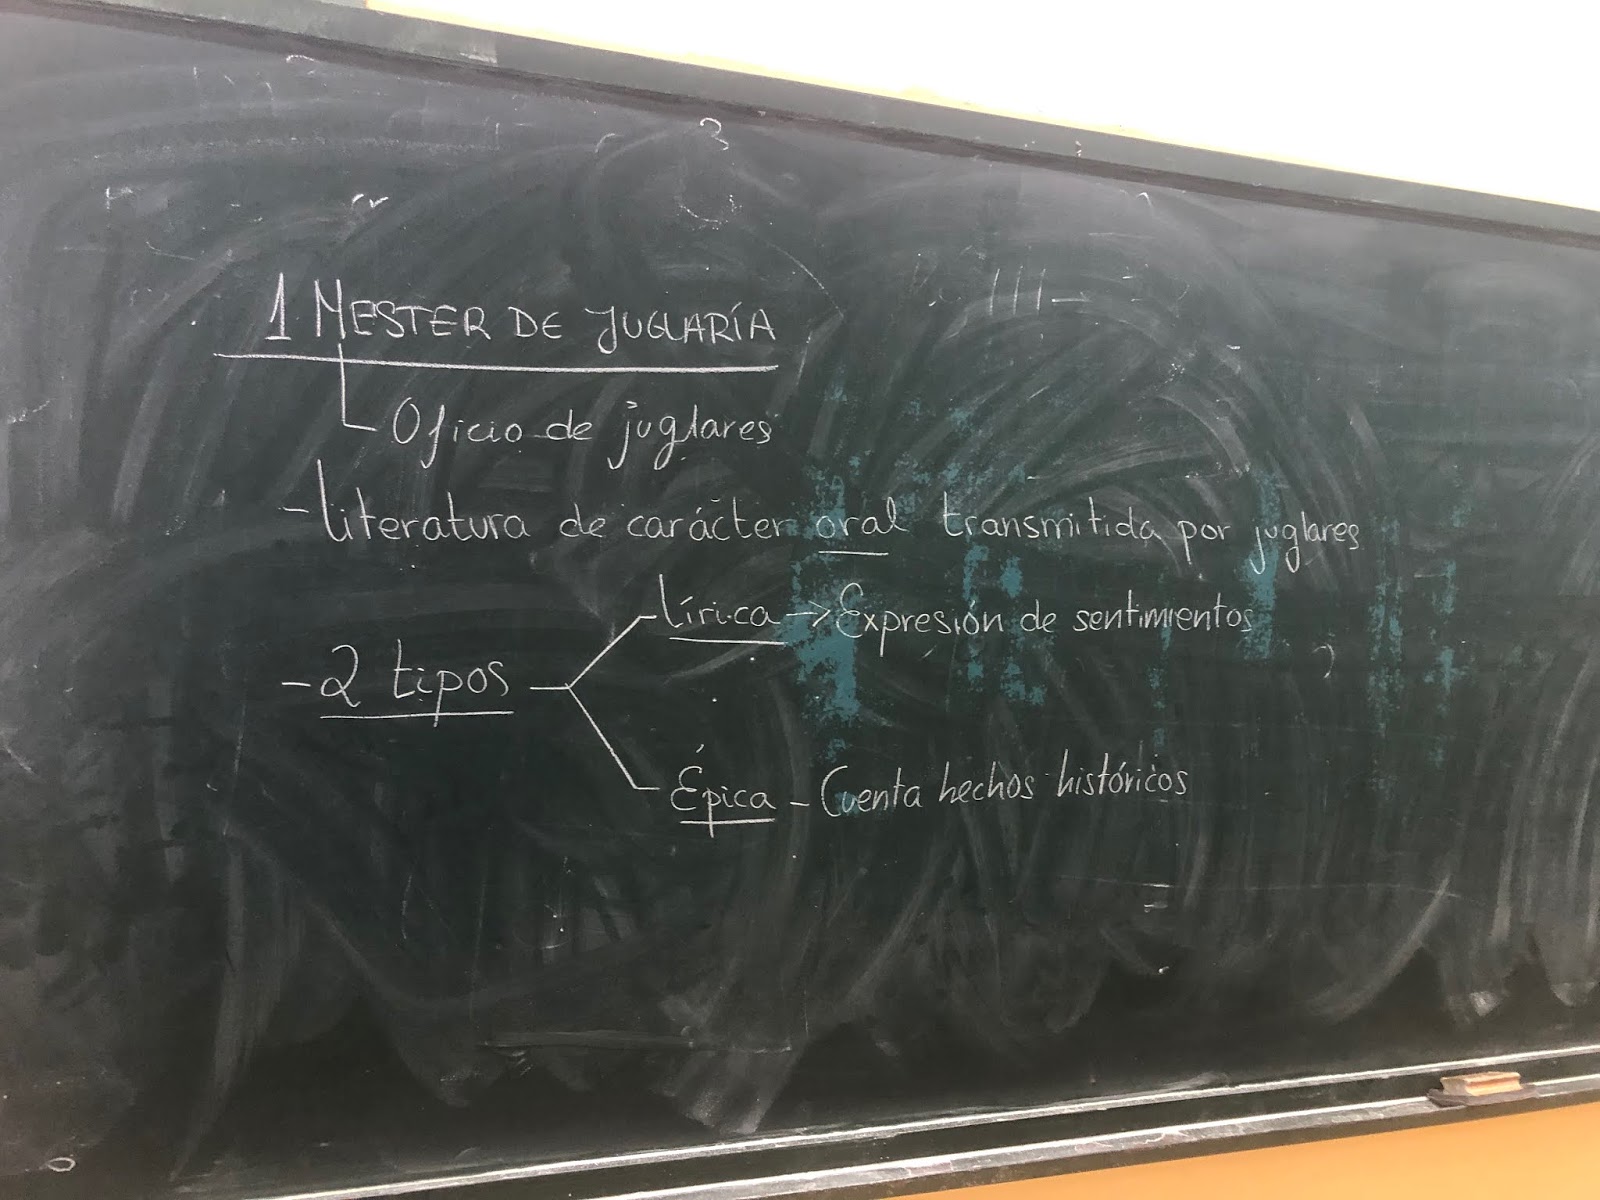 1 MESTER DE JUGLARÍA
Oficio de juglares
- Literatura de carácter oral transmitida por juglares
- 2 tipos
Lírica -> Expresión de sentimientos
Épica - Cuenta hechos históricos